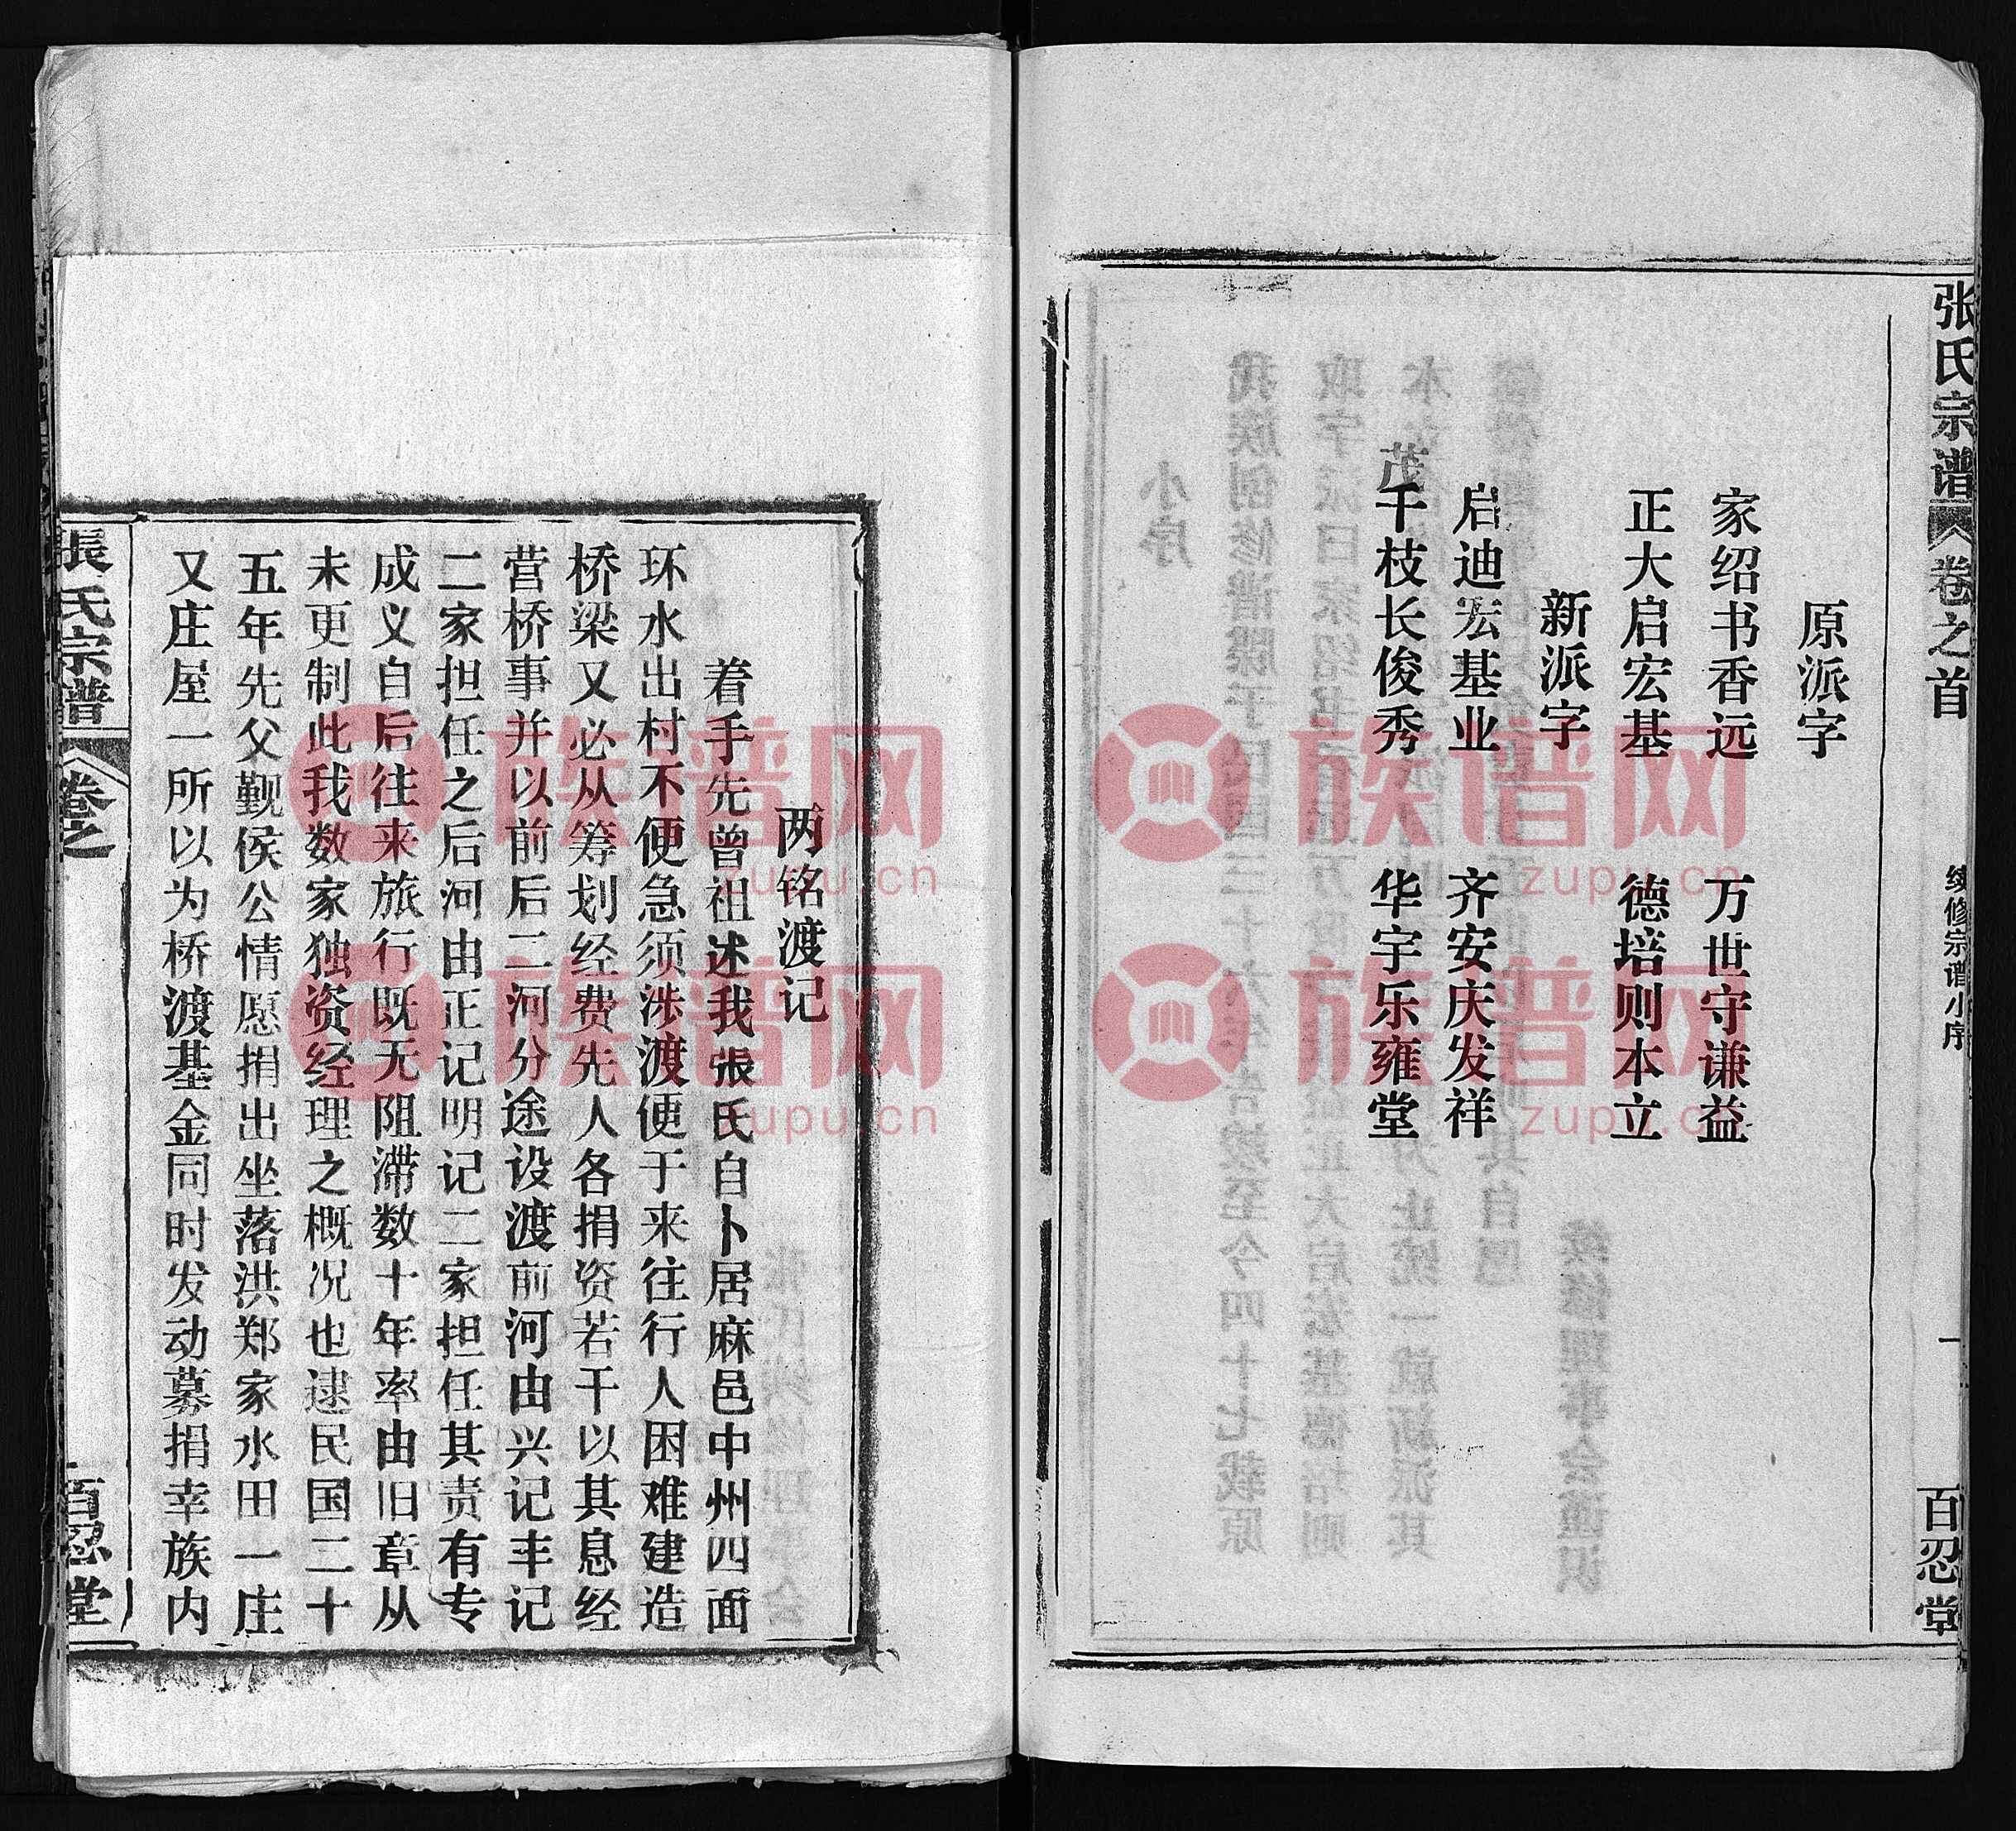 张氏宗谱 卷之首 续修宗谱小序 一 百忍堂
原派字
家绍书香远 万世守谦益
正大启宏基 德培则本立
新派字
启迪宏基业 齐安庆发祥
茂
千枝长俊秀 华宇乐雍堂
两铭渡记
着手先曾祖述我張氏自卜居麻邑中州四面
环水出村不便急须涉渡便于来往行人困难建造
桥梁又必从筹划经费先人各捐资若干以其息经
营桥事并以前后二河分途设渡前河由兴记丰记
二家担任之后河由正记明记二家担任其责有专
成义自后往来旅行既无阻滞数十年率由旧章从
未更制此我数家独资经理之概况也逮民国二十
五年先父觐侯公情愿捐出坐落洪郑家水田一庄
又庄屋一所以为桥渡基金同时发动募捐幸族内
張氏宗譜 卷之 百忍堂
族谱网
zupu.cn
族谱网
zupu.cn
族谱网
zupu.cn
族谱网
zupu.cn